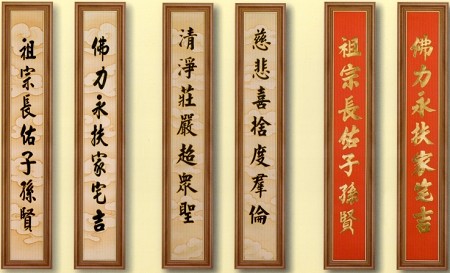 佛力永扶家宅吉
祖宗長佑子孫賢
慈悲喜捨度羣倫
清淨莊嚴超眾聖
佛力永扶家宅吉
祖宗長佑子孫賢